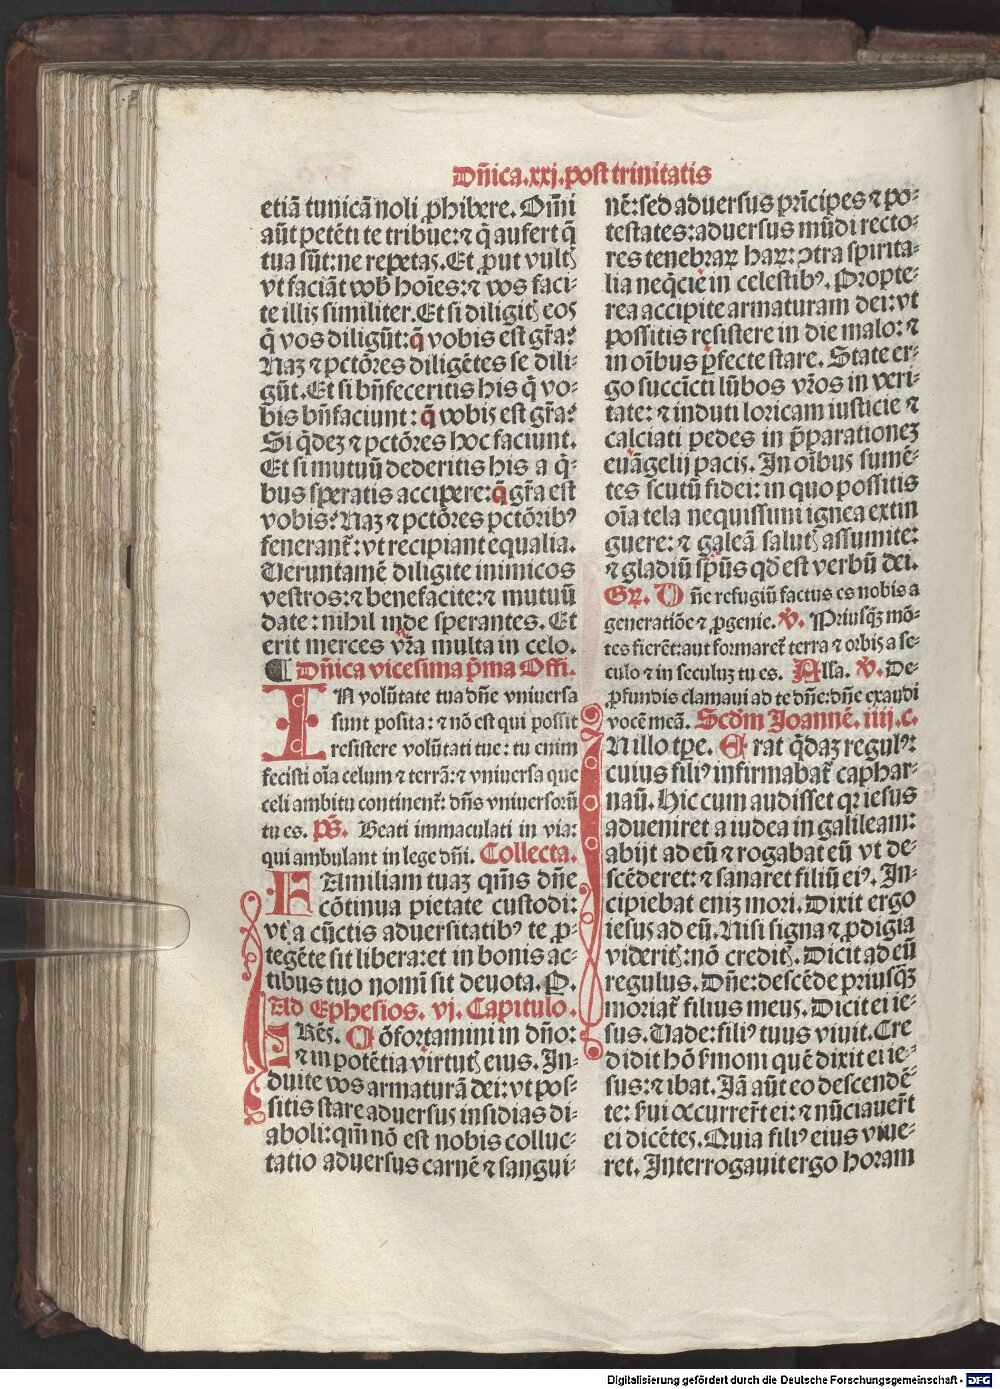 Dñica.xxj.post trinitatis
etiã tunicã noli ꝓhibere. Om̃i
aũt petẽti te tribue:⁊ q̃ aufert q̃
tua sũt:ne repetas. Et ꝓut vultꝭ
vt faciãt vob̃ hoĩes:⁊ vos faci⸗
te illis similiter. Et si diligitꝭ eos
q̃ vos diligũt:q̃ vobis est gr̃a?
Naꝫ ⁊ pctõres diligẽtes se dili⸗
gũt. Et si bñfeceritis his q̃ vo⸗
bis bñfaciunt: q̃ vobis est gr̃a?
Si q̃deꝫ ⁊ pctõres hoc faciunt.
Et si mutuũ dederitis his a q̃⸗
bus speratis accipere:q̃ gr̃a est
vobis? Naꝫ ⁊ pctõres pctõribꝰ
fenerant̃: vt recipiant equalia.
Veruntamẽ diligite inimicos
vestros:⁊ benefacite:⁊ mutuũ
date: nihil inde sperantes. Et
erit merces vr̃a multa in celo.
¶ Dñica vicesima p̃ma Offi.
IN volũtate tua dñe vniuersa
sunt posita: ⁊ nõ est qui possit
resistere volũtati tue: tu enim
fecisti oĩa celum ⁊ terrã:⁊ vniuersa que
celi ambitu continent̃: dñs vniuersorũ
tu es. Ps̃. Beati immaculati in via:
qui ambulant in lege dñi. Collecta.
FAmiliam tuaꝫ qm̃s dñe
cõtinua pietate custodi:
vt a cũctis aduersitatibꝰ te ꝓ⸗
tegẽte sit libera:et in bonis ac⸗
tibus tuo nomĩ sit deuota. P.
Ad Ephesios. vj. Capitulo.
FRẽs. Cõfortamini in dño:
⁊ in potẽtia virtutꝭ eius. In⸗
duite vos armaturã dei: vt pos⸗
sitis stare aduersus insidias di⸗
aboli: qm̃ nõ est nobis colluc⸗
tatio aduersus carnẽ ⁊ sangui⸗
nẽ:sed aduersus prĩcipes ⁊ po⸗
testates: aduersus mũdi recto⸗
res tenebraꝝ haꝝ: ↄtra spirita⸗
lia neq̃cie in celestibꝰ. Propte⸗
rea accipite armaturam dei: vt
possitis resistere in die malo: ⁊
in oĩbus ꝑfecte stare. State er⸗
go succĩcti lũbos vr̃os in veri⸗
tate: ⁊ induti loricam iusticie ⁊
calciati pedes in p̃parationeꝫ
euãgelij pacis. In oĩbus sumẽ⸗
tes scutũ fidei: in quo possitis
oĩa tela nequissimi ignea extin
guere: ⁊ galeã salutꝭ assumite:
⁊ gladiũ sp̃ũs qd̃ est verbũ dei.
Gꝝ. Dñe refugiũ factus es nobis a
generatiõe ⁊ ꝓgenie. v̇. Priusqꝫ mõ⸗
tes fierẽt:aut formaret̃ terra ⁊ orbis a se⸗
culo ⁊ in seculuꝫ tu es. Alla. v̇. De⸗
ꝓfundis clamaui ad te dñe:dñe exaudi
vocẽ meã. Scd̃m Joannẽ. iiij.c.
IN illo tꝑe. Erat q̃daꝫ regulꝰ:
cuius filiꝰ infirmabat̃ caphar⸗
naũ. Hic cum audisset qꝛ iesus
adueniret a iudea in galileam:
abijt ad eũ ⁊ rogabat eũ vt de⸗
scẽderet: ⁊ sanaret filiũ eiꝰ. In⸗
cipiebat eniꝫ mori. Dixit ergo
iesus ad eũ. Nisi signa ⁊ ꝓdigia
videritꝭ: nõ creditꝭ. Dicit ad eũ
regulus. Dñe: descẽde priusqꝫ
moriat̃ filius meus. Dicit ei ie⸗
sus. Vade: filiꝰ tuus viuit. Cre
didit hõ s̃moni quẽ dixit ei ie⸗
sus: ⁊ ibat. Jã aũt eo descendẽ⸗
te: s̃ui occurrer̃t ei: ⁊ nũciauer̃t
ei dicẽtes. Quia filiꝰ eius viue⸗
ret. Interrogauit ergo horam
Digitalisierung gefördert durch die Deutsche Forschungsgemeinschaft - DFG